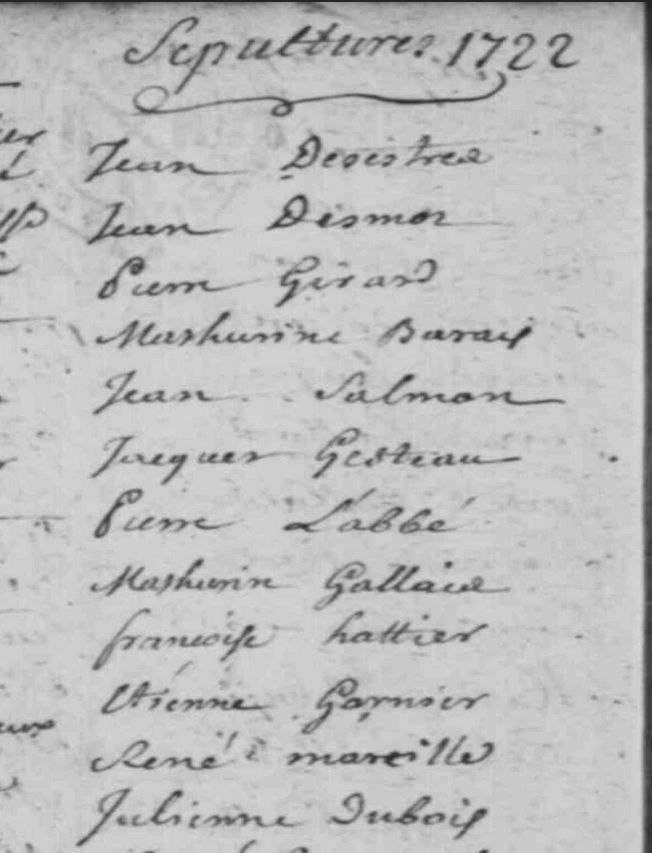 Sepultures. 1722
Jean
Jean Desmor
Pierre Girard
Mathurine Barais
Jean Salmon
Jacques Gesteau
Pierre L'abbé
Mathurin
francoise hattier
Etienne Garnier
René mareille
Julienne Dubois